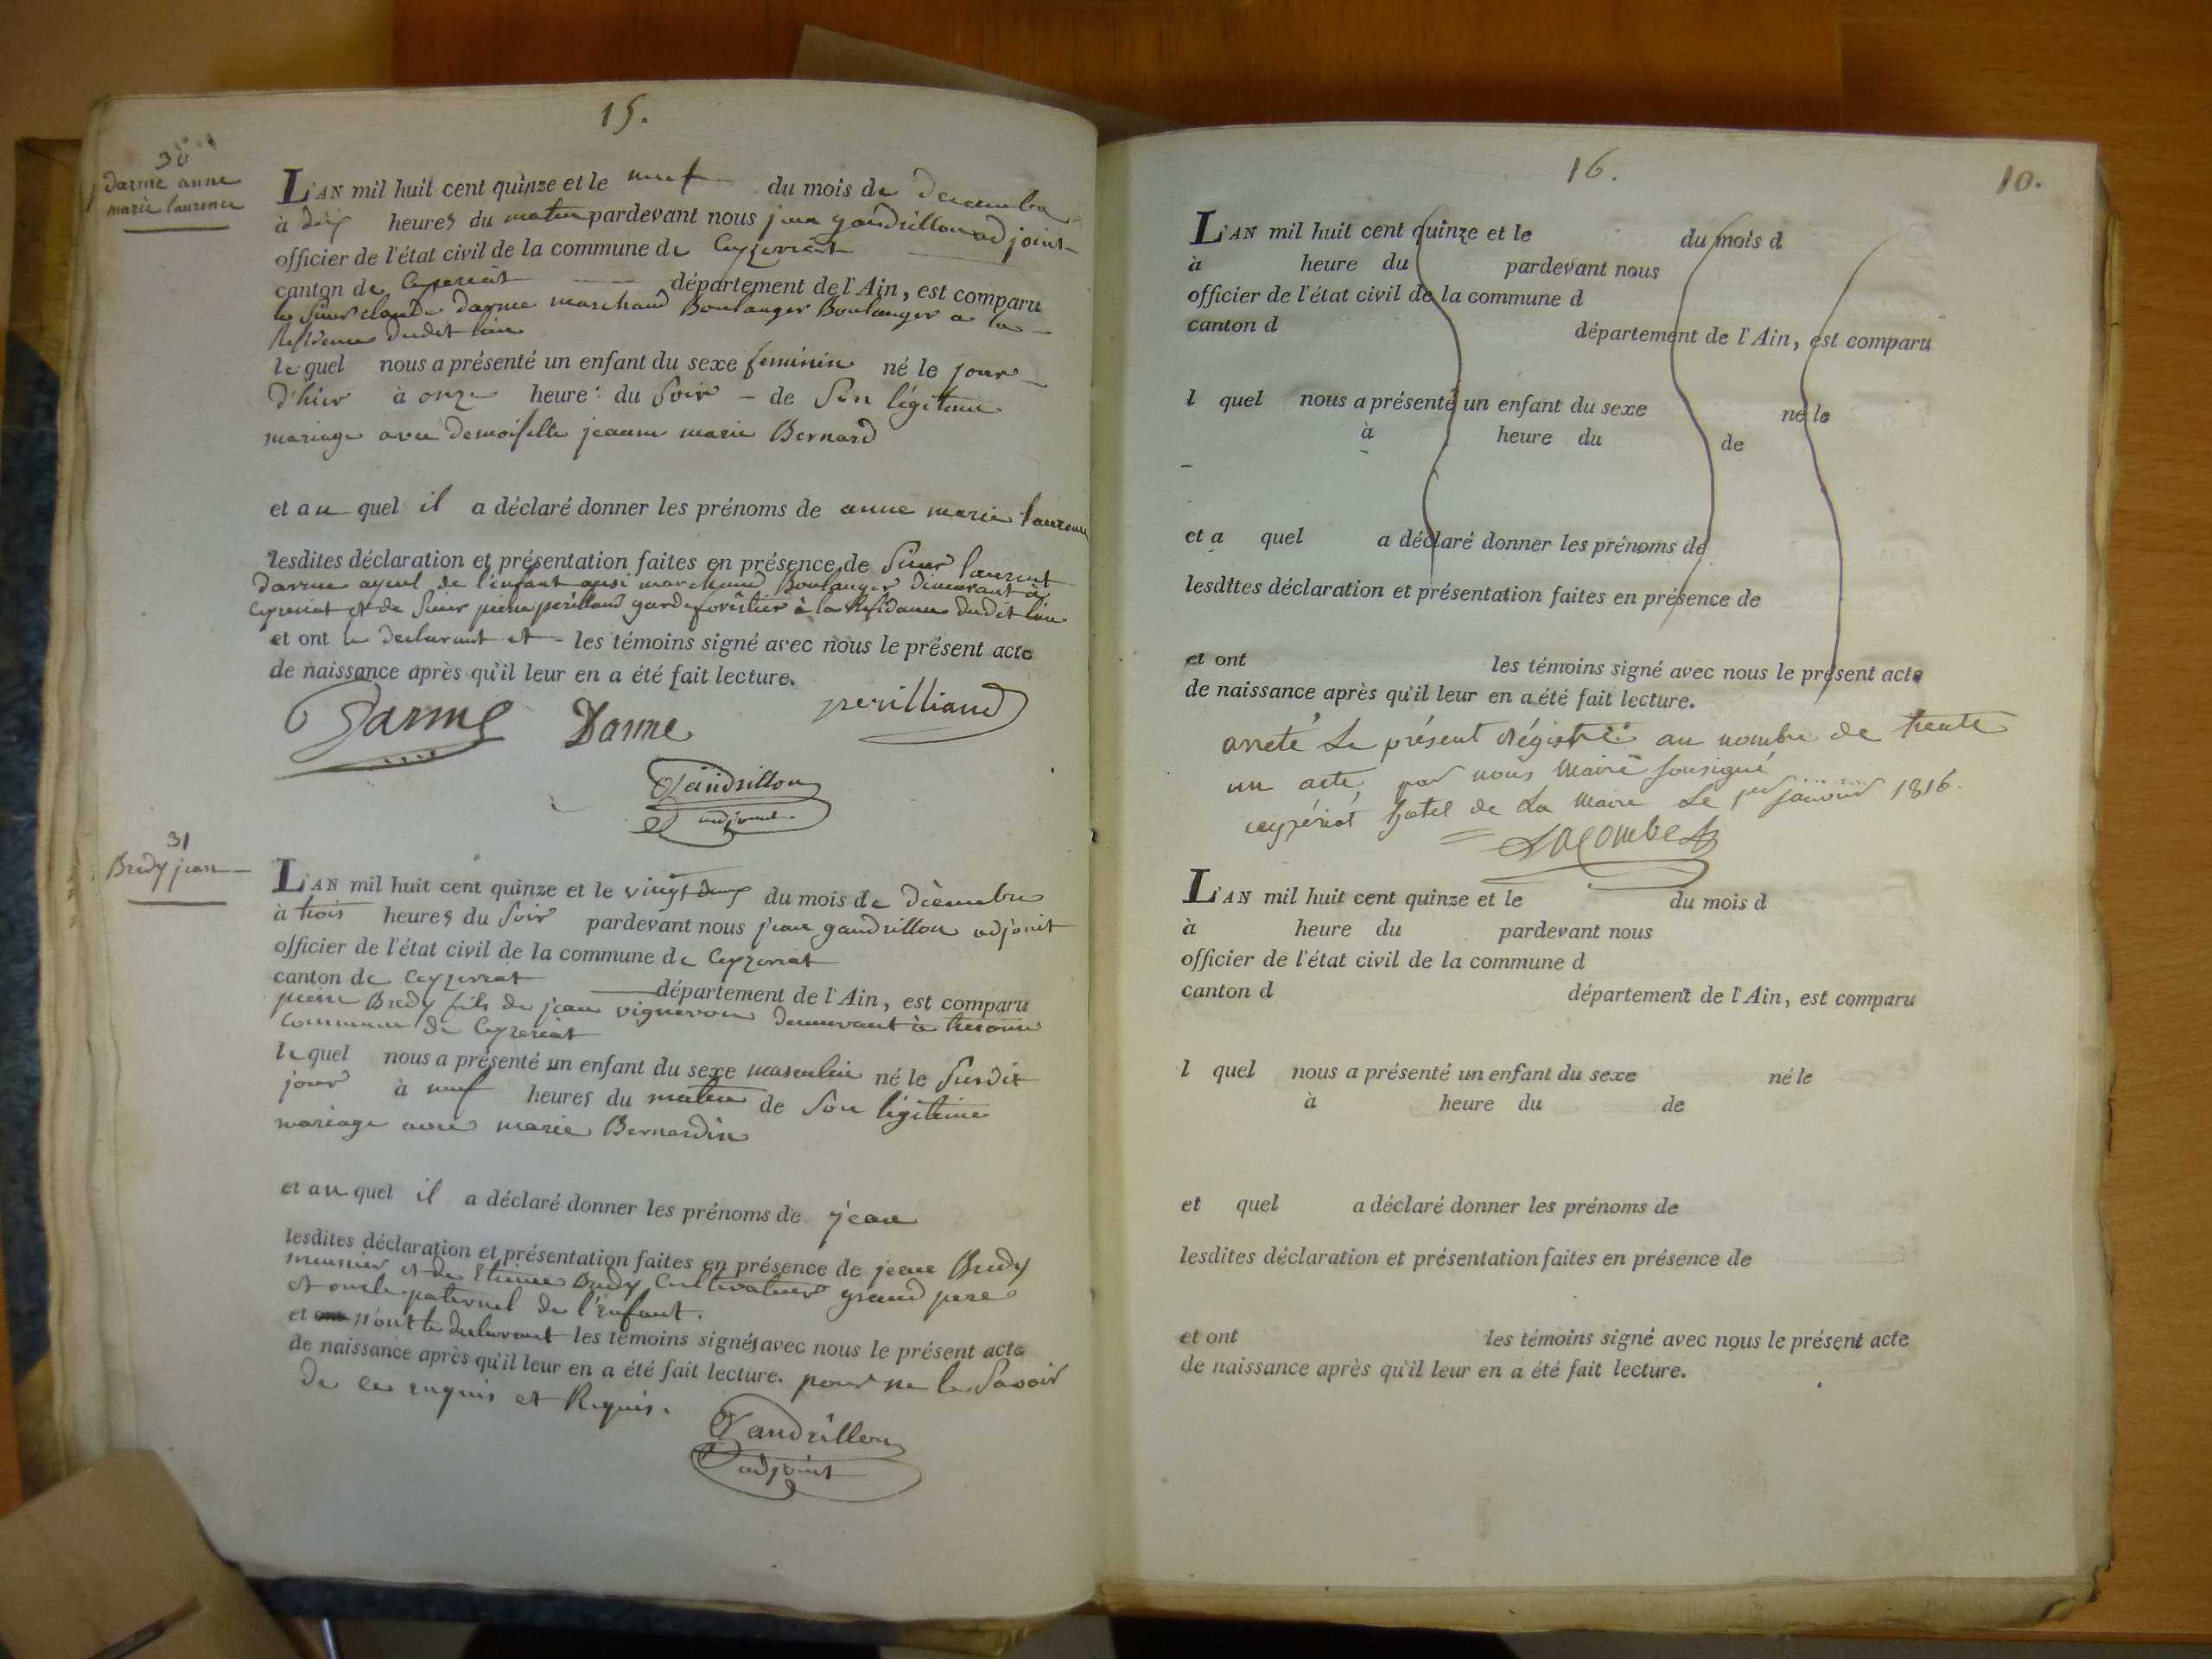 15.
30
darme anne
marie laurence
L'AN mil huit cent quinze et le neuf du mois de decembre
à dix heures du matin pardevant nous jean gandrillon adjoint
officier de l'état civil de la commune de Ceyzeriat
canton de Ceyzeriat département de l'Ain, est comparu
le sieur claude darme marchand Boulanger Boulanger a la
Residence dudit lieu
lequel nous a présenté un enfant du sexe feminin né le jour
d'hier à onze heure du soir de son légitime
mariage avec demoiselle jeanne marie Bernard
et au quel il a déclaré donner les prénoms de anne marie laurence
lesdites déclaration et présentation faites en présence de sieur laurent
darme ayeul de l'enfant ausi marchand Boulanger dimorant à
Ceyzeriat et de sieur pierre perilliand garde forêstier à la Résidance dudit lieu
et ont le declarant et les témoins signé avec nous le présent acte
de naissance après qu'il leur en a été fait lecture.
Darme Darme perilliand
Gandrillon
adjoint.
31
Bredy jean
L'AN mil huit cent quinze et le vingt deux du mois de décembre
à trois heures du soir pardevant nous jean gandrillon adjoint
officier de l'état civil de la commune de Ceyzeriat
canton de Ceyzeriat département de l'Ain, est comparu
pierre Bredy fils de jean vigneron demeurant à
commune de Ceyzeriat
lequel nous a présenté un enfant du sexe masculin né le susdit
jour à neuf heures du matin de son légitime
mariage avec marie Bernardin
et au quel il a déclaré donner les prénoms de jean
lesdites déclaration et présentation faites en présence de jean Bredy
meunier et de Etienne Bredy Cultivateur grand pere
et oncle paternel de l'enfant.
et n'ont le declarant les témoins signés avec nous le présent acte
de naissance après qu'il leur en a été fait lecture. pour ne le savoir
de ce enquis et Requis.
Gandrillon
adjoint
16.
10.
L'AN mil huit cent quinze et le du mois d
à heure du pardevant nous
officier de l'état civil de la commune d
canton d département de l'Ain, est comparu
l quel nous a présenté un enfant du sexe né le
à heure du de
et a quel a déclaré donner les prénoms de
lesdites déclaration et présentation faites en présence de
et ont les témoins signé avec nous le présent acte
de naissance après qu'il leur en a été fait lecture.
arreté Le présent Régistre au nombre de trente
un acte, par nous Maire sousigné
ceyzériat hotel de La Maire Le 1er janvier 1816.
Lacombe
L'AN mil huit cent quinze et le du mois d
à heure du pardevant nous
officier de l'état civil de la commune d
canton d département de l'Ain, est comparu
l quel nous a présenté un enfant du sexe né le
à heure du de
et quel a déclaré donner les prénoms de
lesdites déclaration et présentation faites en présence de
et ont les témoins signé avec nous le présent acte
de naissance après qu'il leur en a été fait lecture.